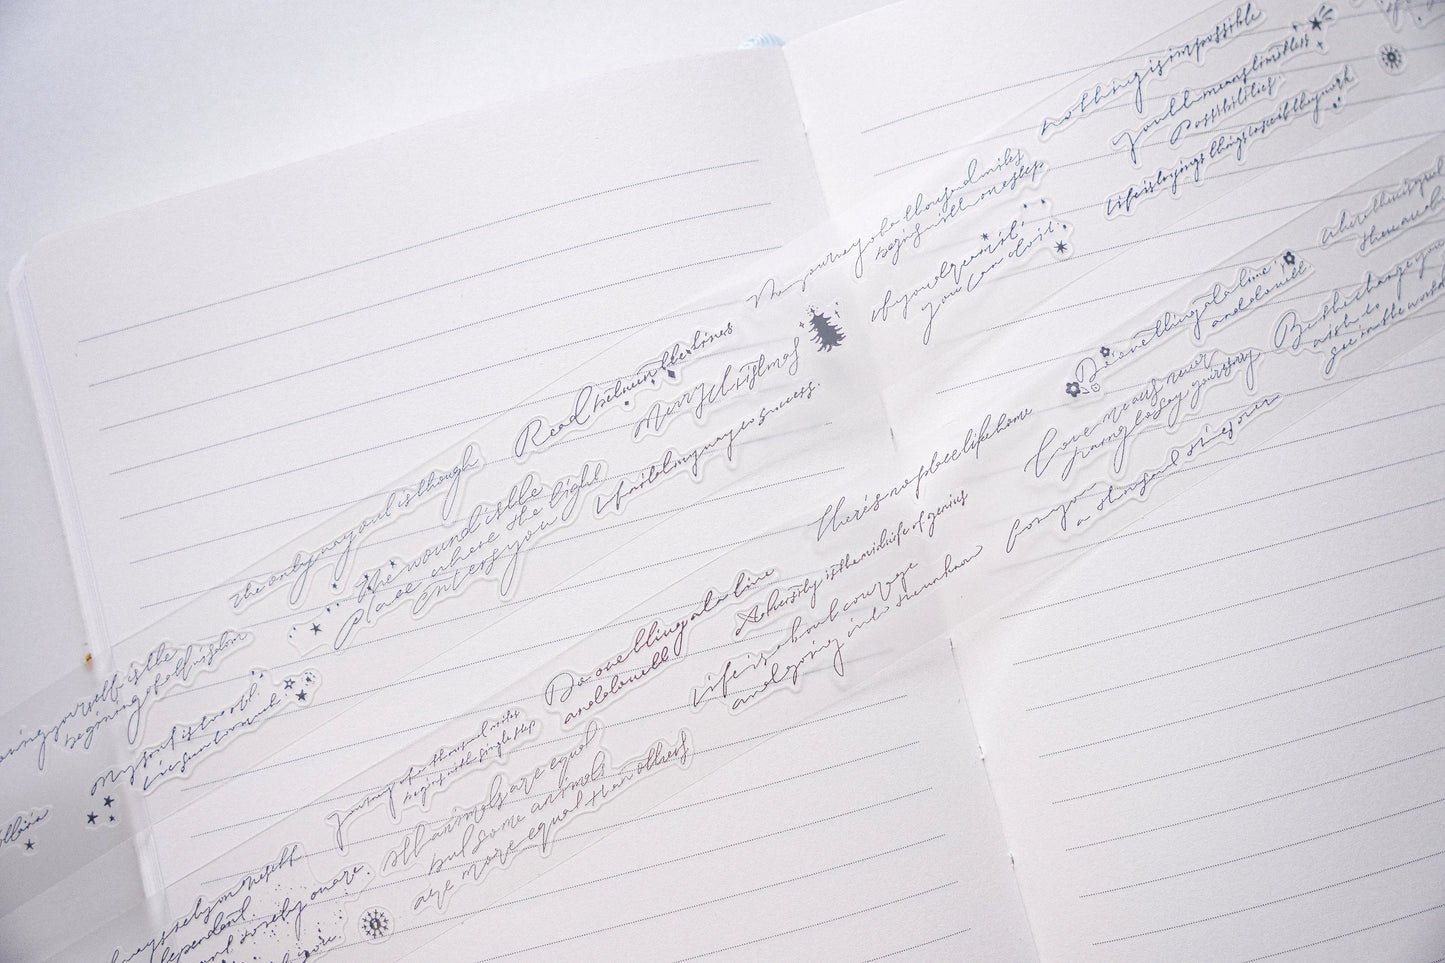 nothing is impossible
Youth means limitless
Possibilities.
Life is trying things to see if they work
The journey of a thousand miles
begins with one step
if you dream it,
you can do it.
Read between the lines
Merry Christmas
I failed my way to success.
the only way out is through
The wound is the
place where the light
enters you
yourself is the
beginning of all wisdom
My soul is
where there is great
there
Do one thing at a time,
and do well
Be the change you
wish to
see in the world
Love means never
having to say you're sorry
For you
a thousand times over
There's no place like home
Adversity is the midwife of genius
Life is about courage
and going into the unknown
Do one thing at a time
and do well
Journey of a thousand miles
begins with single step
All animals are equal
but some animals
are more equal than others